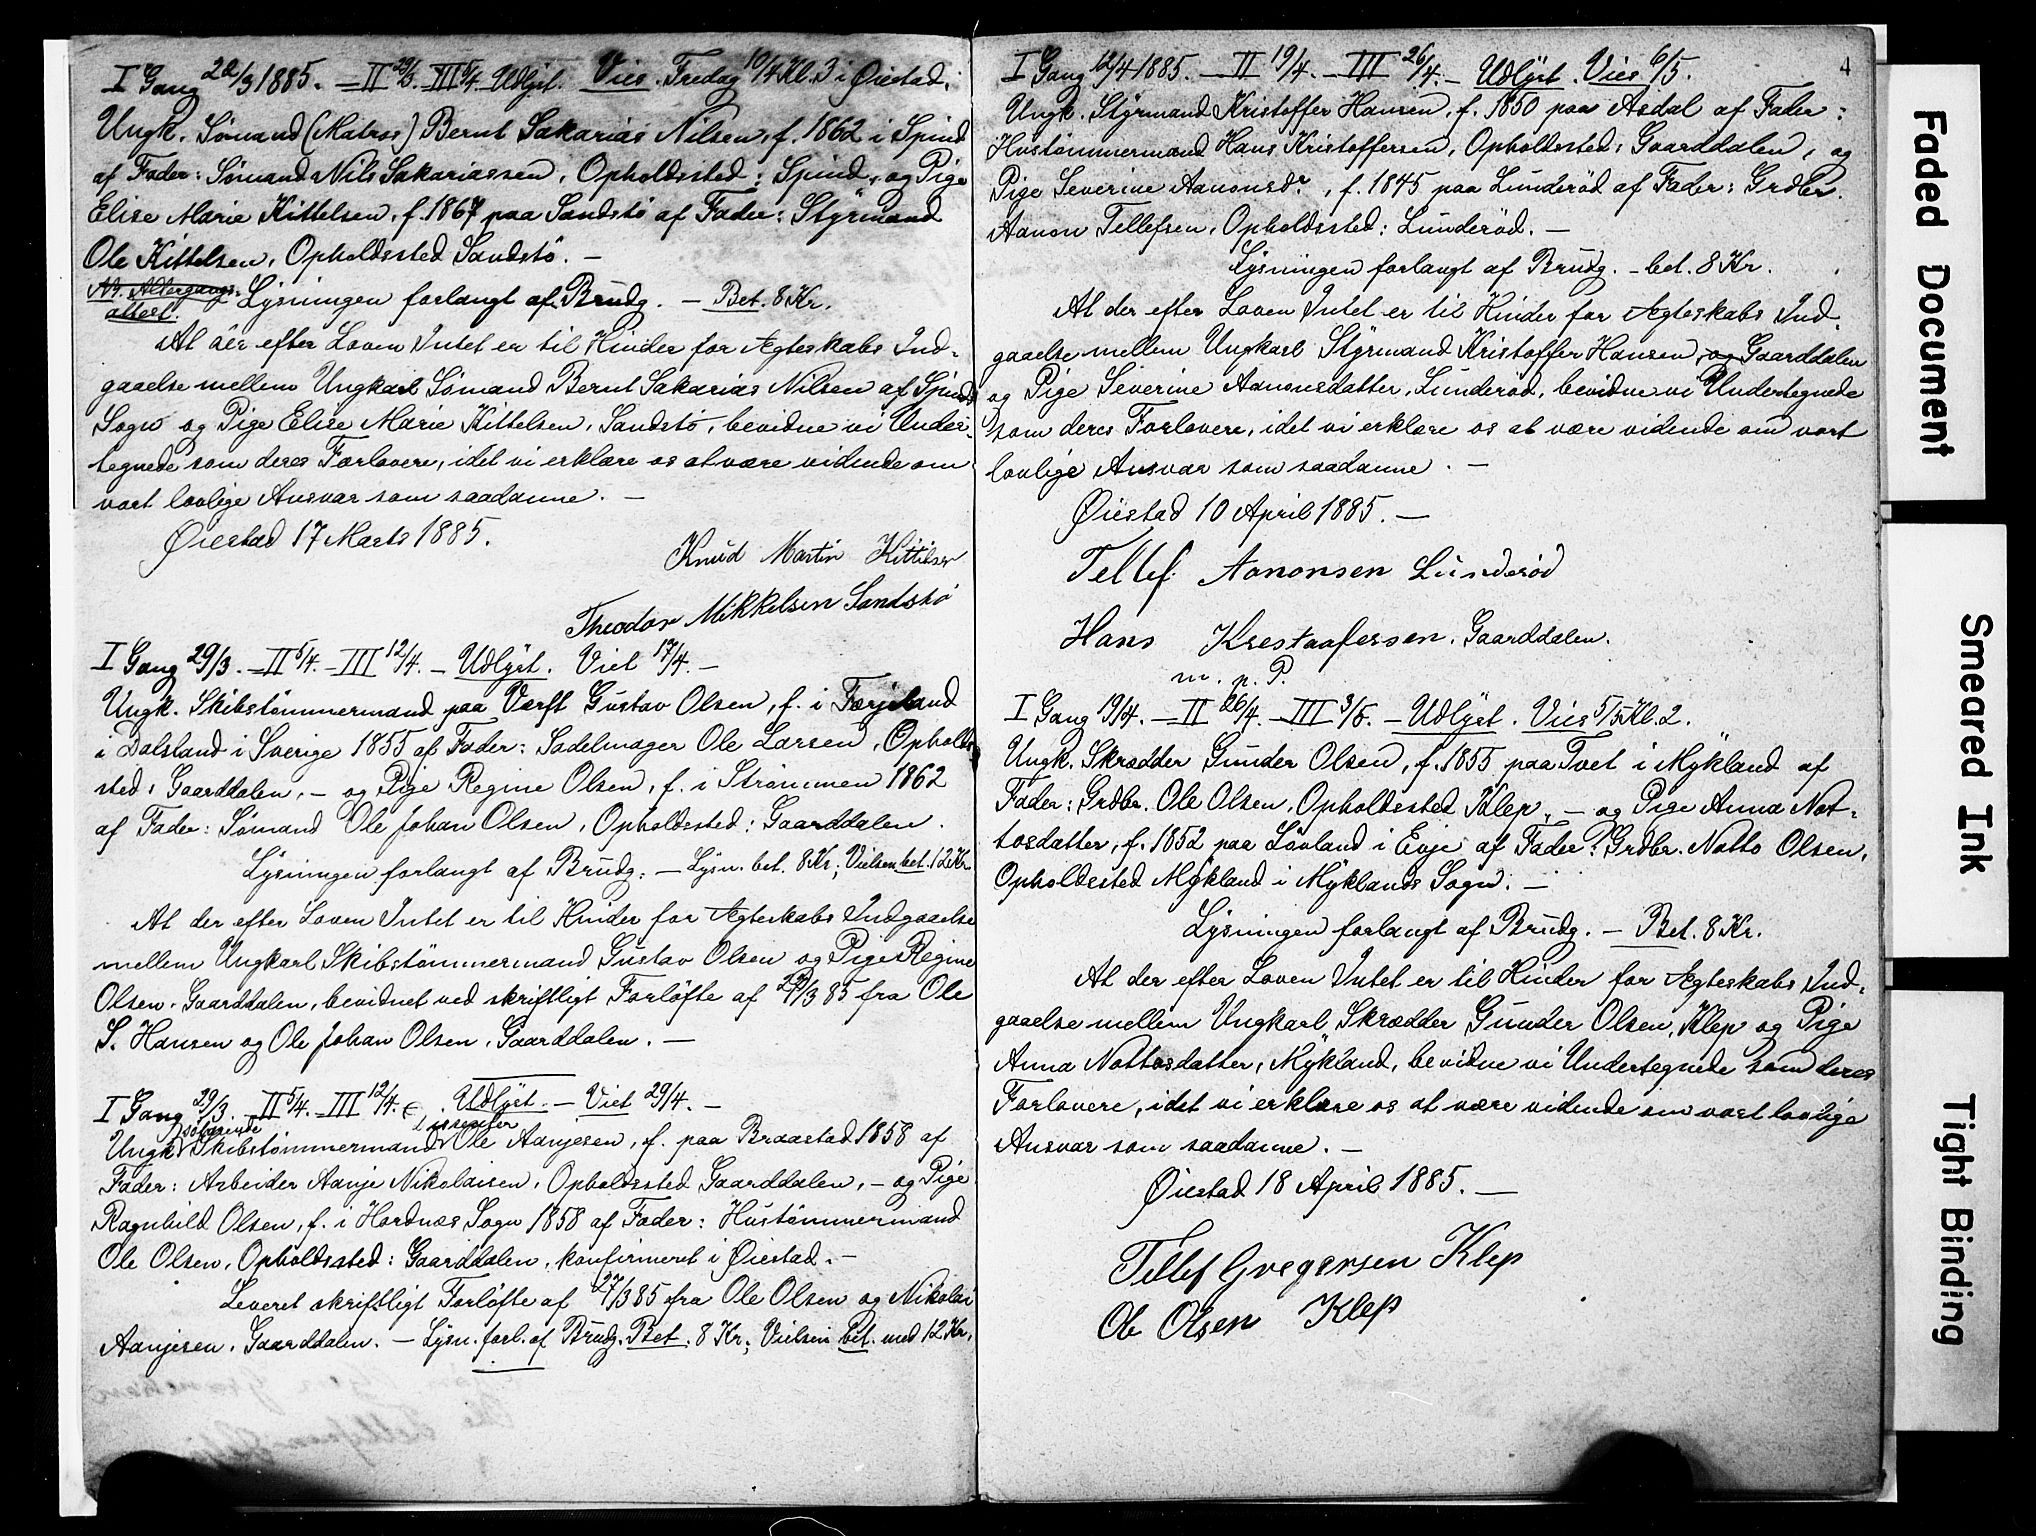 I Gang 22/3 1885. – II 29/3. III 5/4. Udlyst. Vies. Fredag 10/4 Kl. 3 i Øiestad.
Ungk. Sømand (Matros) Bernt Sakarias Nilsen, f. 1862 i Spind
af Fader: Sømand Nils Sakariassen, Opholdssted: Spind, og Pige
Elise Marie Kittelsen, f. 1867 paa Sandstø af Fader: Styrmand
Ole Kittelsen, Opholdssted Sandstö. –
Lysningen forlangt af Brudg. – Bet. 8 Kr.
attest.
At der efter Loven Intet er til Hinder for Ægteskabs Ind-
gaaelse mellem Ungkarl Sømand Bernt Sakarias Nilsen af Spinds
Sogn og Pige Elise Marie Kittelsen, Sandstö, bevidne vi Under-
tegnede som deres Forlovere, idet vi erklære os at være vidende om
vort lovlige Ansvar som saadanne. –
Øiestad 17 Marts 1885.
Knud Martin Kittilsen
Theodor Mikkelsen Sandstö
I Gang 29/3. – II 5/4. – III 12/4. – Udlyst. Viet 17/4. –
Ungk. Skibstømmermand paa Værft Gustav Olsen, f. i Færjeland
i Dalsland i Sverige 1855 af Fader: Sadelmager Ole Larsen, Opholds-
sted: Gaarddalen, – og Pige Regine Olsen, f. i Strömmen 1862
af Fader: Sømand Ole Johan Olsen, Opholdssted: Gaarddalen.
Lysningen forlangt af Brudg. – Lysn. bet. 8 Kr; Vielsen bet. 12 Kr
At der efter Loven Intet er til Hinder for Ægteskabs Indgaaelse
mellem Ungkarl Skibstömmermand Gustav Olsen og Pige Regine
Olsen, Gaarddalen, bevidnet ved skriftligt Forløfte af /3 85 fra Ole
S. Hansen og Ole Johan Olsen, Gaarddalen. –
I Gang 29/3. II 5/4. – III 12/4. Udlyst. – Viet 29/4. –
søfarende Dissenter
Ungk. Skibstømmermand Ole Aanjesen, f. paa Braastad 1858 af
Fader: Arbeider Aanje Nikolaisen, Opholdssted Gaarddalen, – og Pige
Ragnhild Olsen, f. i Hordnæs Sogn 1858 af Fader: Hustömmermand
Ole Olsen, Opholdssted: Gaarddalen, konfirmeret i Øiestad. –
Leveret skriftligt Forløfte af 27/3 85 fra Ole Olsen og Nikolai
Aanjesen, Gaarddalen. – Lysn. forl. af Brudg. Bet. 8 Kr; Vielsen bet. med 12 Kr.
4
I Gang 12/4 1885. – II 19/4. – III 26/4. – Udlyst. Vies 6/5.
Ungk. Styrmand Kristoffer Hansen, f. 1850 paa Asdal af Fader:
Hustømmermand Hans Kristoffersen, Opholdssted: Gaarddalen, og
Pige Severine Aanonsdr., f. 1845 paa Lunderöd af Fader: Grdbr.
Aanon Tellefsen, Opholdssted: Lunderöd. –
Lysningen forlangt af Brudg. – bet. 8 Kr.
At der efter Loven Intet er til Hinder for Ægteskabs Ind-
gaaelse mellem Ungkarl Styrmand Kristoffer Hansen, og Gaarddalen
og Pige Severine Aanonsdatter, Lunderöd, bevidne vi Undertegnede
som deres Forlovere, idet vi erklære os at være vidende om vort
lovlige Ansvar som saadanne. –
Øiestad 10 April 1885. –
Tellef Aanonsen Lunderöd
Hans Krestaafersen. Gaarddalen.
m. p. P.
I Gang 19/4. – II 26/4. – III 3/5. – Udlyst. Vies 5/5 Kl. 2.
Ungk. Skrædder Gunder Olsen, f. 1855 paa Tvet i Mykland af
Fader: Grdbr. Ole Olsen, Opholdssted Klep, – og Pige Anna Not-
tosdatter, f. 1852 paa Lövland i Evje af Fader: Grdbr. Notto Olsen,
Opholdssted Mykland i Myklands Sogn. –
Lysningen forlangt af Brudg. – Bet. 8 Kr.
At der efter Loven Intet er til Hinder for Ægteskabs Ind-
gaaelse mellem Ungkarl Skrædder Gunder Olsen, Klep og Pige
Anna Nottosdatter, Mykland, bevidne vi Undertegnede som deres
Forlovere, idet vi erklære os at være vidende om vort lovlige
Ansvar som saadanne. –
Øiestad 18 April 1885. –
Tellef Gregersen Klep
Ole Olsen Klep
Faded Document
Smeared Ink
Tight Binding